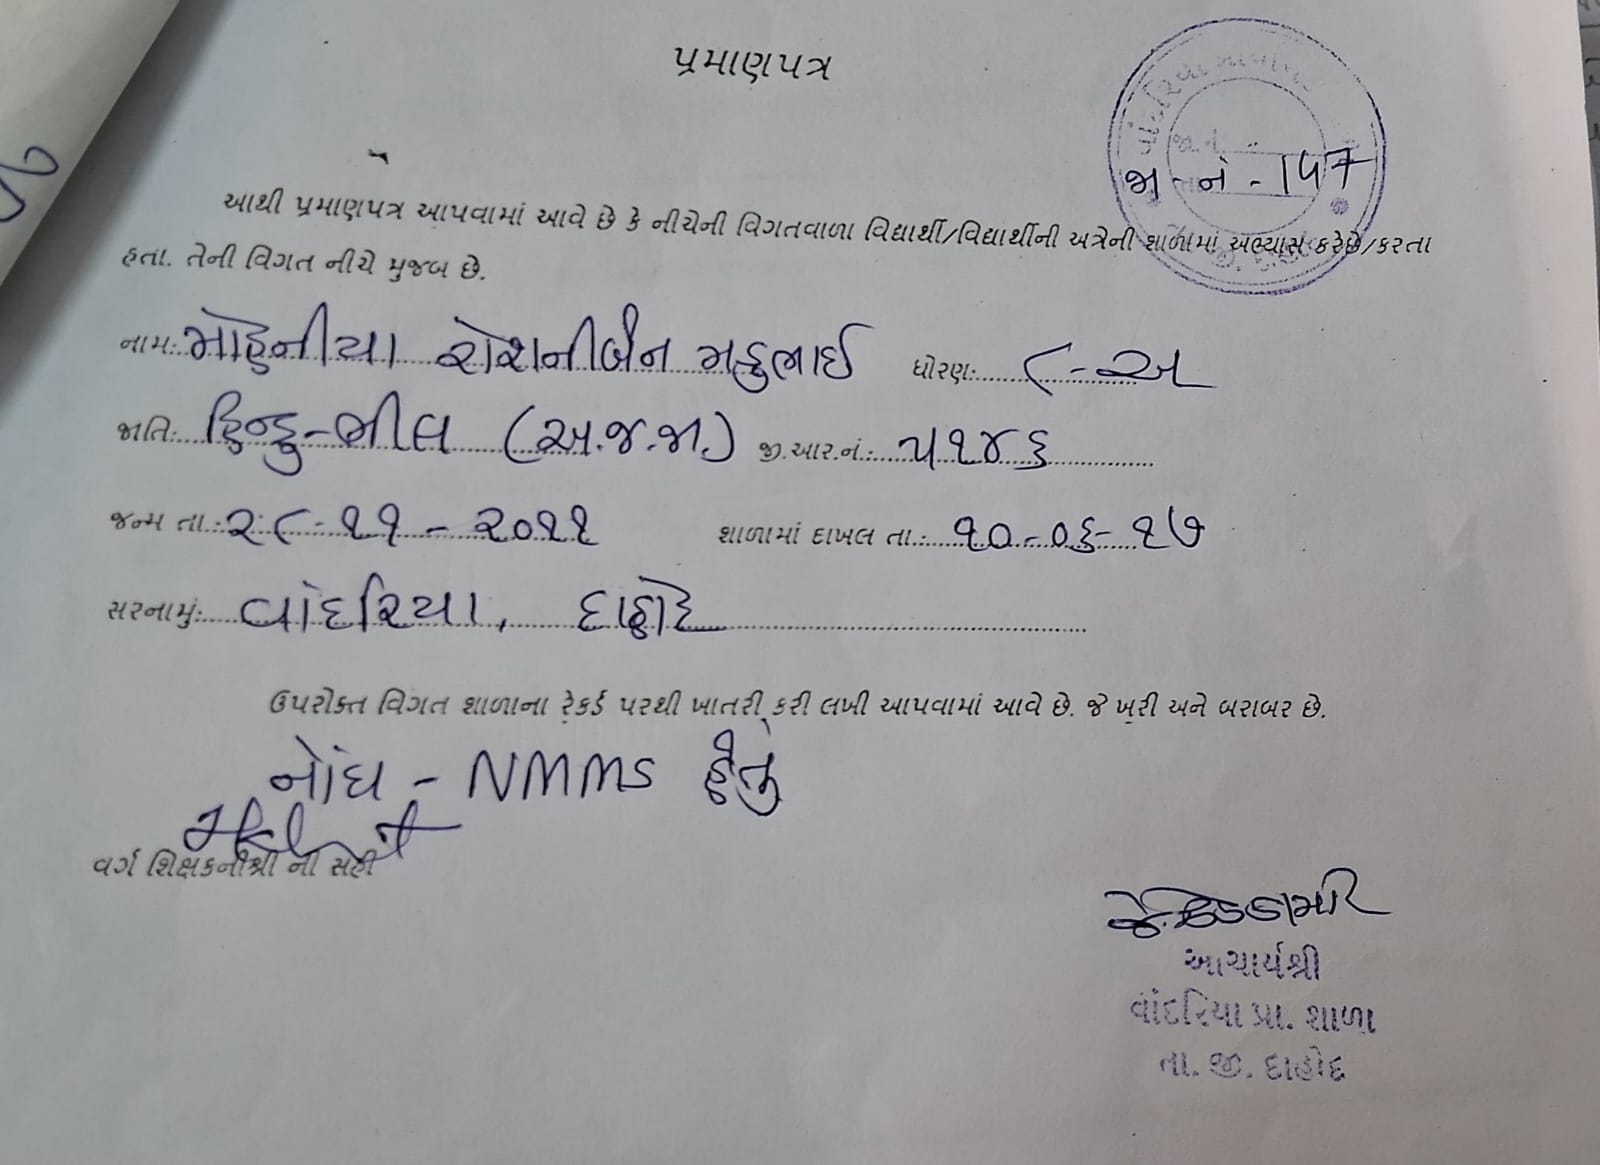 પ્રમાણપત્ર
જા - નં - 147
આથી પ્રમાણપત્ર આપવામાં આવે છે કે નીચેની વિગતવાળા વિદ્યાર્થી/વિદ્યાર્થીની અત્રેની શાળામાં અભ્યાસ કરેછે/કરતા
હતા. તેની વિગત નીચે મુજબ છે.
નામ: મોહનીયા રોશનીબેન મડુભાઈ ધોરણ: ૮-અ
જાતિ: હિન્દુ-ભીલ (અ.જ.જા.) જી.આર.નં.: ૫૧૪૬
જન્મ તા.: ૨૮-૧૧-૨૦૧૧ શાળામાં દાખલ તા.: ૧૦-૦૬-૧૭
સરનામું: વાંદરિયા, દાહોદ
ઉપરોક્ત વિગત શાળાના રેકર્ડ પરથી ખાતરી કરી લખી આપવામાં આવે છે. જે ખરી અને બરાબર છે.
નોંધ - NMMS હેતું
વર્ગ શિક્ષકનીશ્રી ની સહી
આચાર્યશ્રી
વાંદરિયા પ્રા. શાળા
તા.જી. દાહોદ